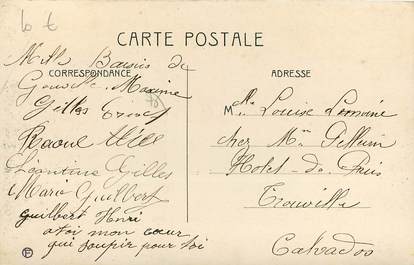 CARTE POSTALE
CORRESPONDANCE
Mille Baisers de
Gouville Maxime
Gilles
Raoul
Léontine Gilles
Marie Guilbert
Guilbert Henri
a toi mon cœur
qui soupir pour toi
ADRESSE
Mlle Louise Lemoine
chez Mr
Hotel de Paris
Trouville
Calvados